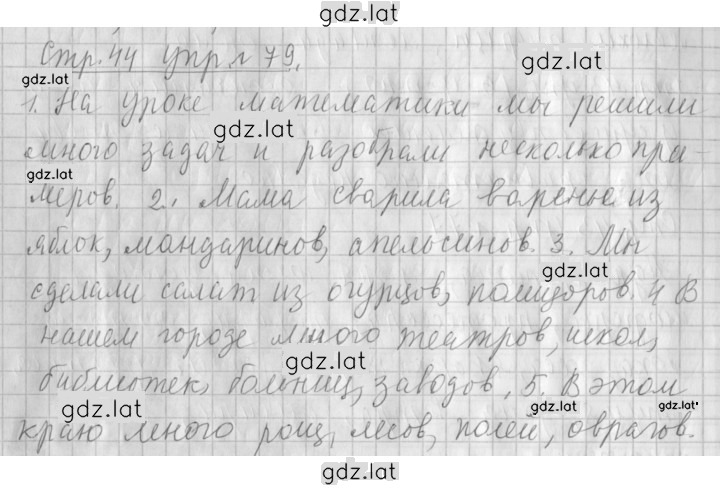 gdz.lat
Стр. 44 упр. 79.
gdz.lat
gdz.lat
1. На уроке математики мы решили
gdz.lat
много задач и разобрали несколько при-
gdz.lat
меров. 2. Мама сварила варенье из
яблок, мандаринов, апельсинов. 3. Мы
gdz.lat
сделали салат из огурцов, помидоров. 4 В
нашем городе много театров, школ,
gdz.lat
библиотек, больниц, заводов. 5. В этом
gdz.lat
gdz.lat
gdz.lat
краю много рощ, лесов, полей, оврагов.
gdz.lat